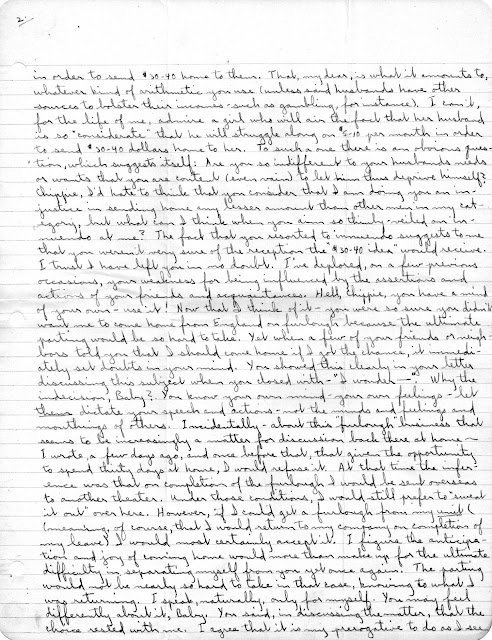 2.
in order to send $30-40 home to them. That, my dear, is what it amounts to,
whatever kind of arithmetic you use (unless said husbands have other
sources to bolster their income - such as gambling, for instance). I can't,
for the life of me, admire a girl who will air the fact that her husband
is so "considerate" that he will struggle along on $5-10 per month in order
to send $30-40 dollars home to her. To such a one there is an obvious ques-
tion, which suggests itself: Are you so indifferent to your husband's needs
or wants that you are content (even vain) to let him thus deprive himself?
Chippie, I'd hate to think that you consider that I am doing you an in-
justice in sending home any lesser amount than other men in my cat-
egory, but what can I think when you aim so thinly-veiled an in-
nuendo at me? The fact that you resorted to innuendo suggests to me
that you weren't very sure of the reception the "$30-40 idea" would receive.
I trust I have left you in no doubt. I've deplored, on a few previous
occasions, your weakness for being influenced by the assertions and
actions of your friends and acquaintances. Hell, Chippie, you have a mind
of your own - use it! Now that I think of it - you were so sure you didn't
want me to come home from England on furlough because the ultimate
parting would be so hard to take. Yet when a few of your friends or neigh-
bors told you that I should come home if I got the chance, it immedi-
ately set doubts in your mind. You showed this clearly in your letter
discussing this subject when you closed with - "I wonder —". Why the
indecision, Baby? You know your own mind - your own feelings - let
them dictate your speech and actions - not the minds and feelings and
mouthings of others. Incidentally - about this "furlough" business that
seems to be increasingly a matter for discussion back there at home -
I wrote, a few days ago, and once before that, that given the opportunity
to spend thirty days at home, I would refuse it. At that time the infer-
ence was that on completion of the furlough I would be sent overseas
to another theater. Under those conditions, I would still prefer to "sweat
it out" over here. However, if I could get a furlough from my unit (
(meaning, of course, that I would return to my company on completion of
my leave) I would most certainly accept it. I figure the anticipa-
tion and joy of coming home would more than make up for the ultimate
difficulty in separating myself from you yet once again. The parting
would not be nearly so hard to take in that case, knowing to what I
was returning. I speak, naturally, only for myself. You may feel
differently about it, Baby. You said, in discussing the matter, that the
choice rested with me. I agree that it is my prerogative to do as I see